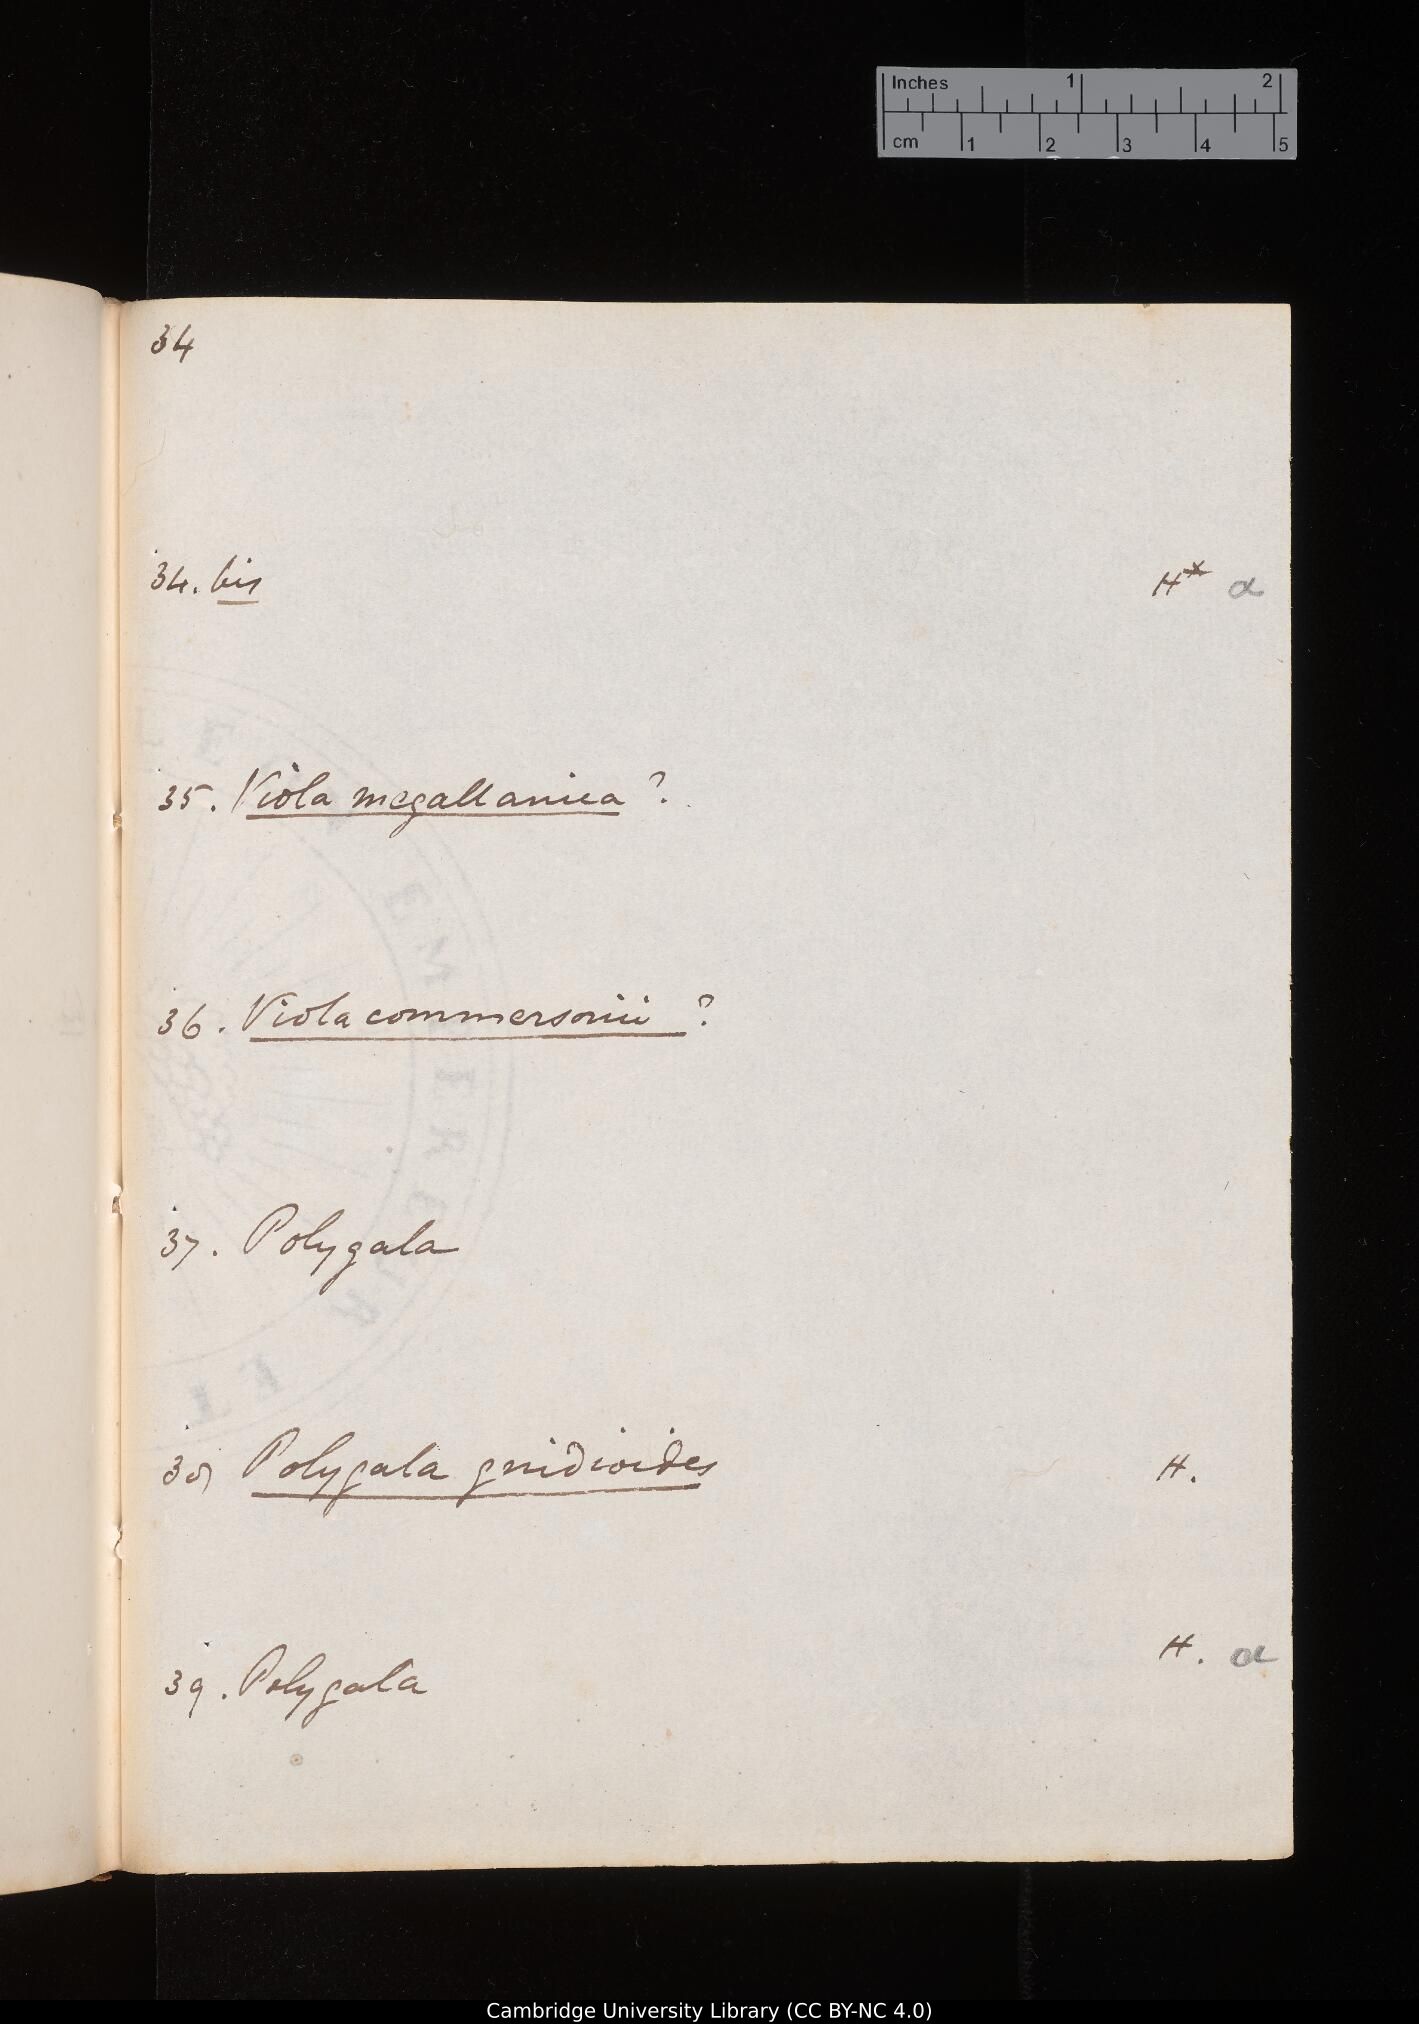 Inches 1 2
cm 1 2 3 4 5
34
34. bis H* α
35. Viola megallanica ?
36. Viola commersonii ?
37. Polygala
38 Polygala gnidioides H.
39. Polygala H. α
Cambridge University Library (CC BY-NC 4.0)